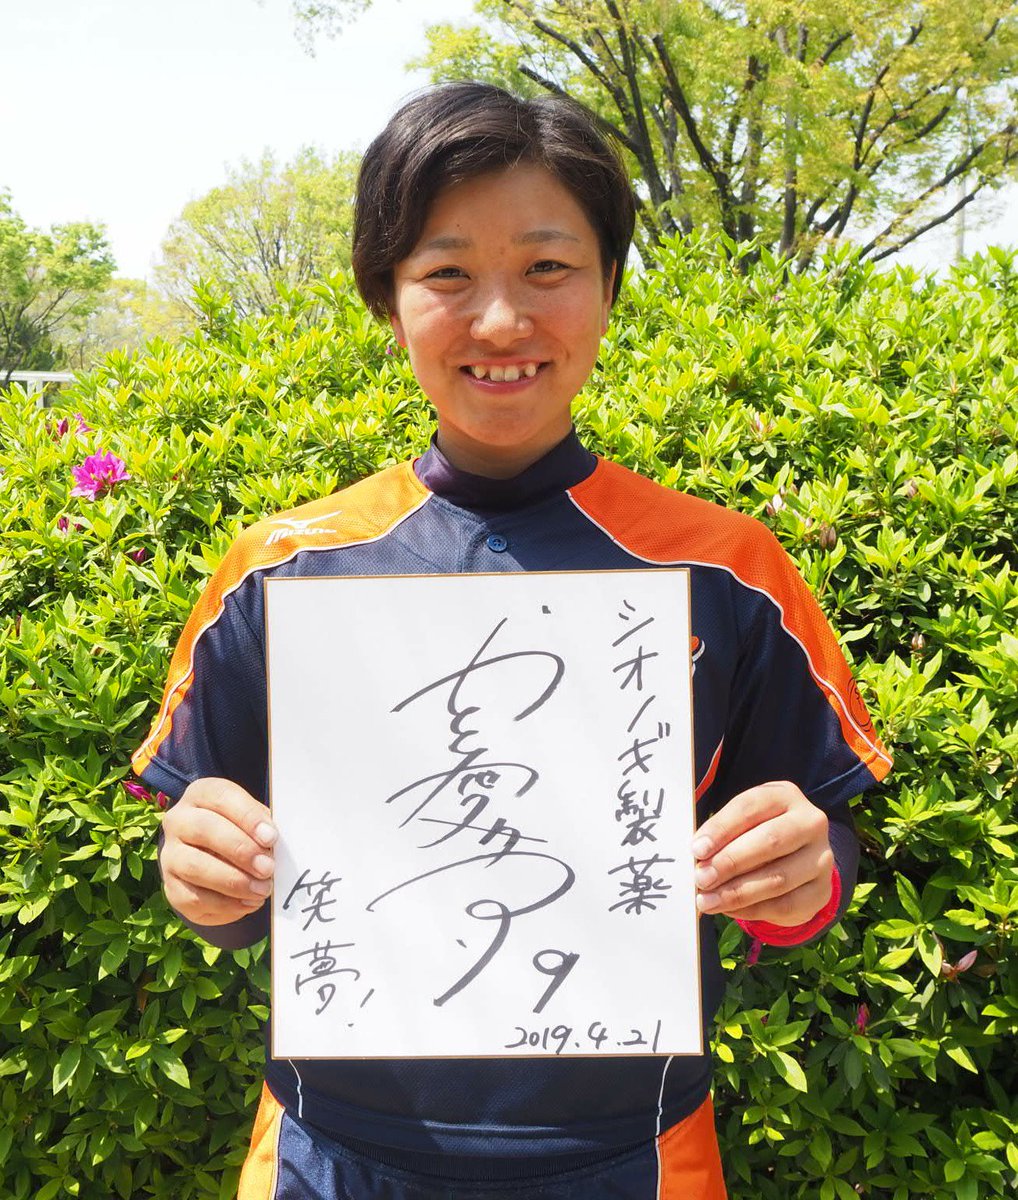 シオノギ製薬
9
笑夢!
2019.4.21
MIZUNO